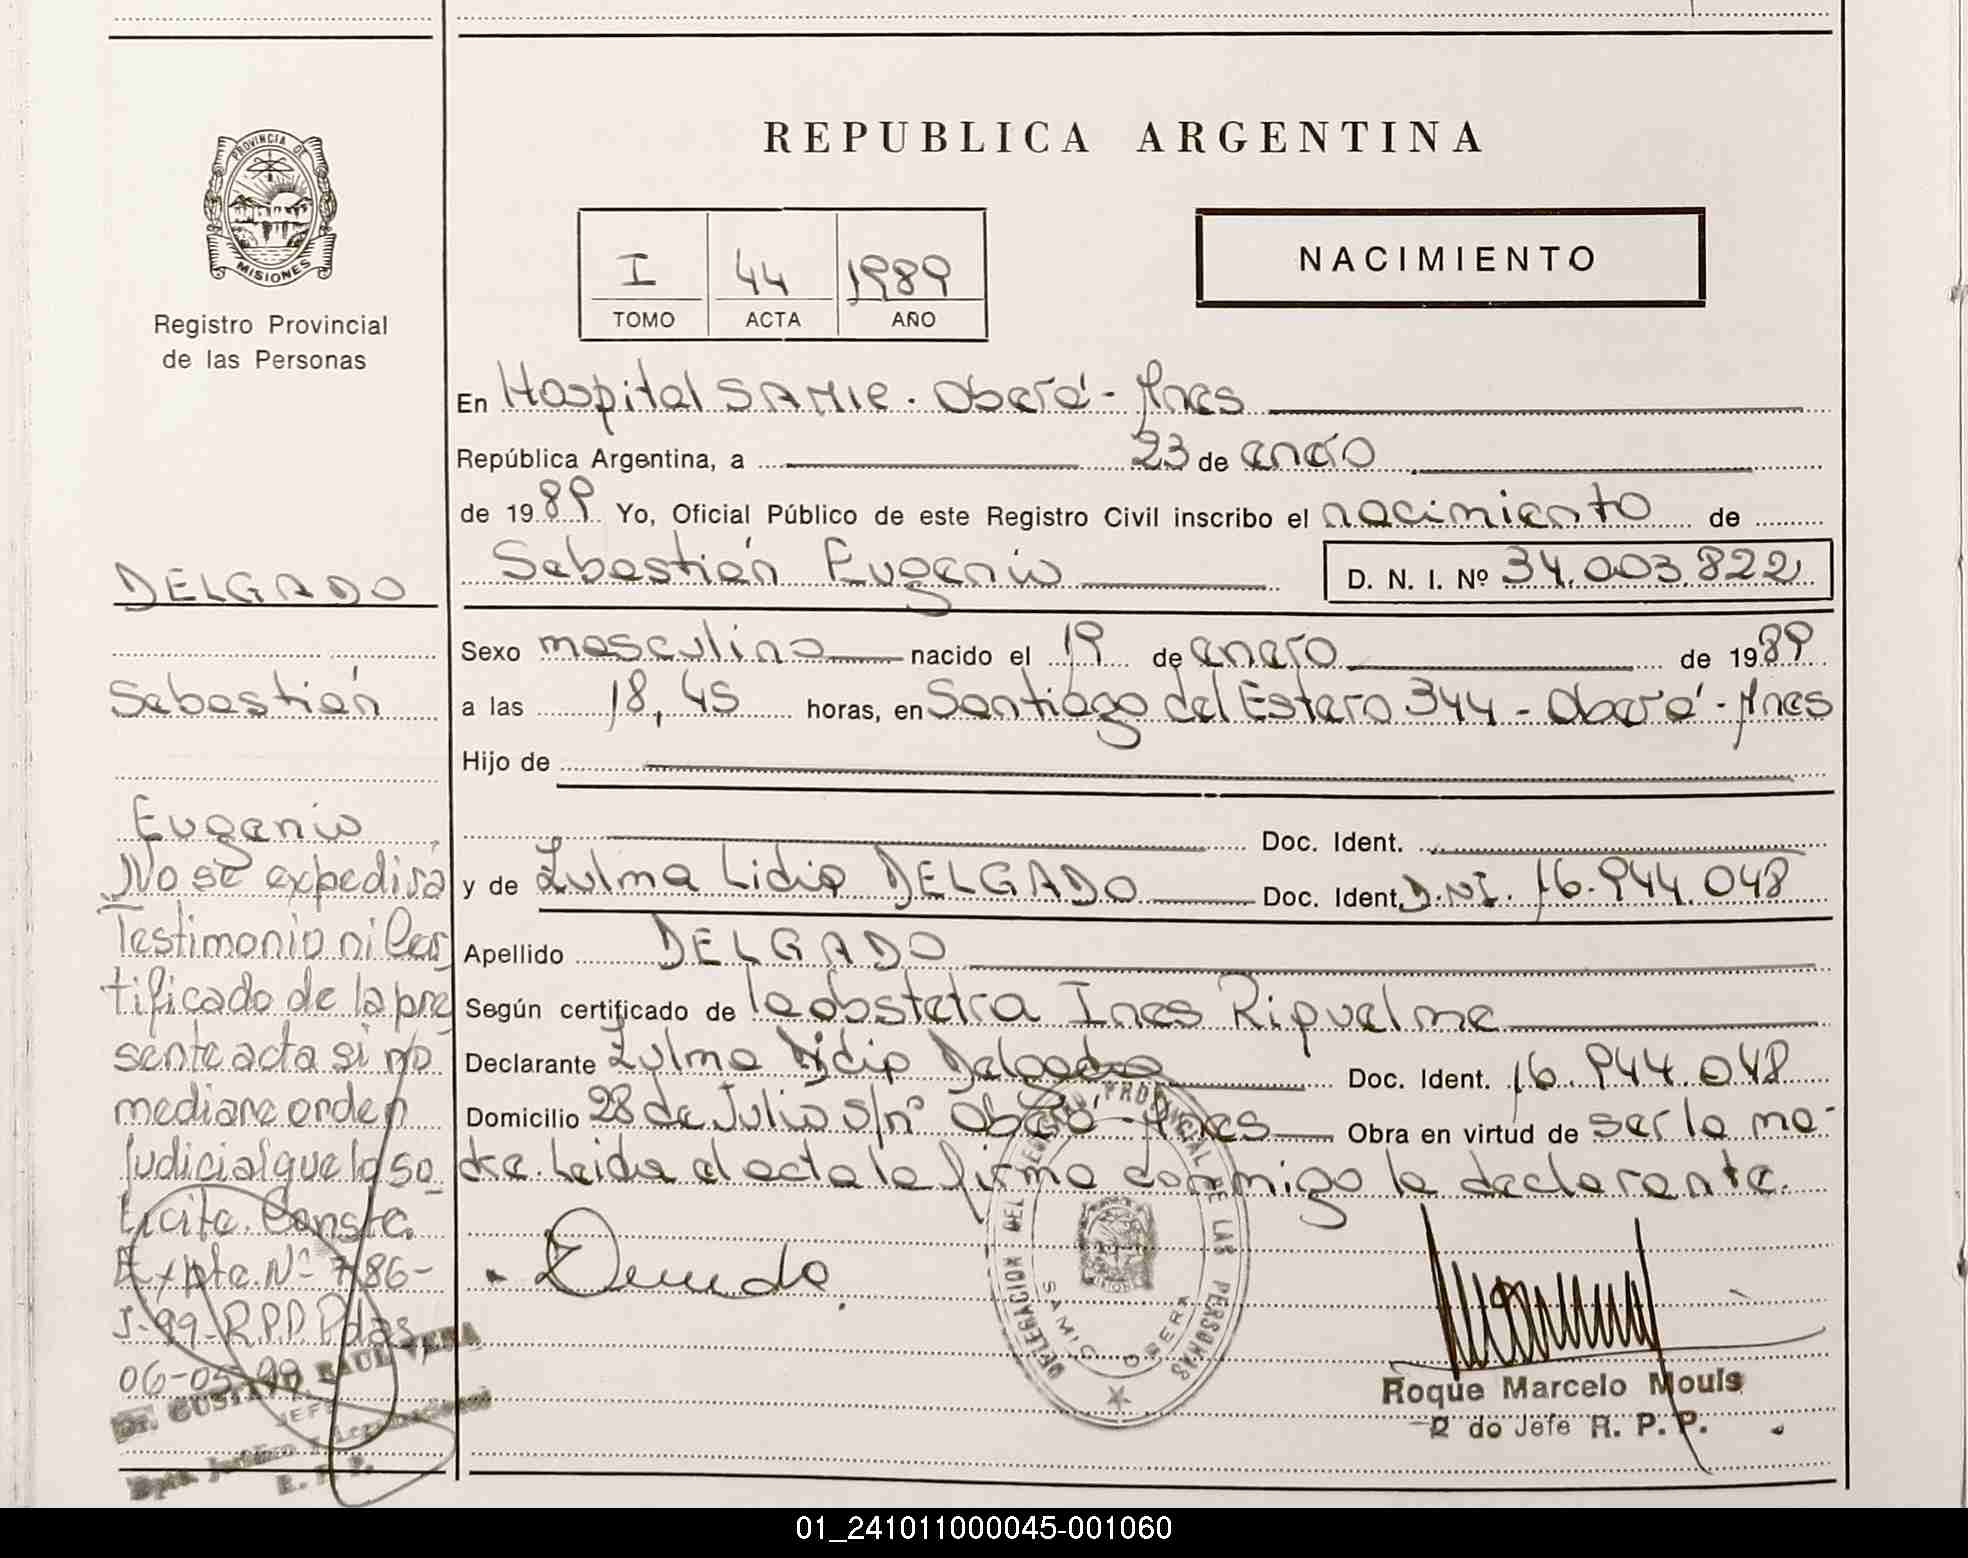 REPUBLICA ARGENTINA
PROVINCIA DE
MISIONES
Registro Provincial
de las Personas
I 44 1989
TOMO ACTA AÑO
NACIMIENTO
En Hospital SAMIC. Oberá - Mnes
República Argentina, a 23 de enero
de 1989 Yo, Oficial Público de este Registro Civil inscribo el nacimiento de
Sebastián Eugenio D. N. I. Nº 34.003.822
Sexo masculino nacido el 19 de enero de 1989
a las 18,45 horas, en Santiago del Estero 344 - Oberá - Mnes
Hijo de
Doc. Ident.
y de Zulma Lidia DELGADO Doc. Ident. D.N.I. 16.944.048
Apellido DELGADO
Según certificado de la obstetra Ines Riquelme
Declarante Zulma Lidia Delgado Doc. Ident. 16.944.048
Domicilio 28 de Julio s/nº Oberá - Mnes Obra en virtud de ser la ma-
dre. Leida el acta la firma conmigo la declarante.
DELGADO
Sebastián
Eugenio
No se expedirá
Testimonio ni Cer
tificado de la pre
sente acta si no
mediare orden
Judicial que lo so
licite. Conste.
Expte. Nº 7186-
J-99-R.P.P. Pdas
06-05-99
Dr. GUSTAVO RAUL VERA
JEFE
Dpto. Jurídico y
R. P. P.
DELEGACION DEL REGISTRO PROVINCIAL DE LAS PERSONAS
SAMIC OBERA
Roque Marcelo Mouls
2 do Jefe R. P. P.
01_241011000045-001060